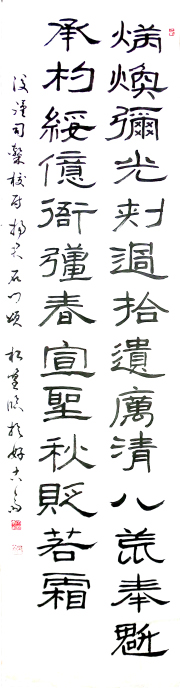 炳煥彌光刾過拾遺厲清八荒奉魁
承杓綏億衙彊春宣聖秋貶若霜
司隸校尉楊君石門頌 臨於好古